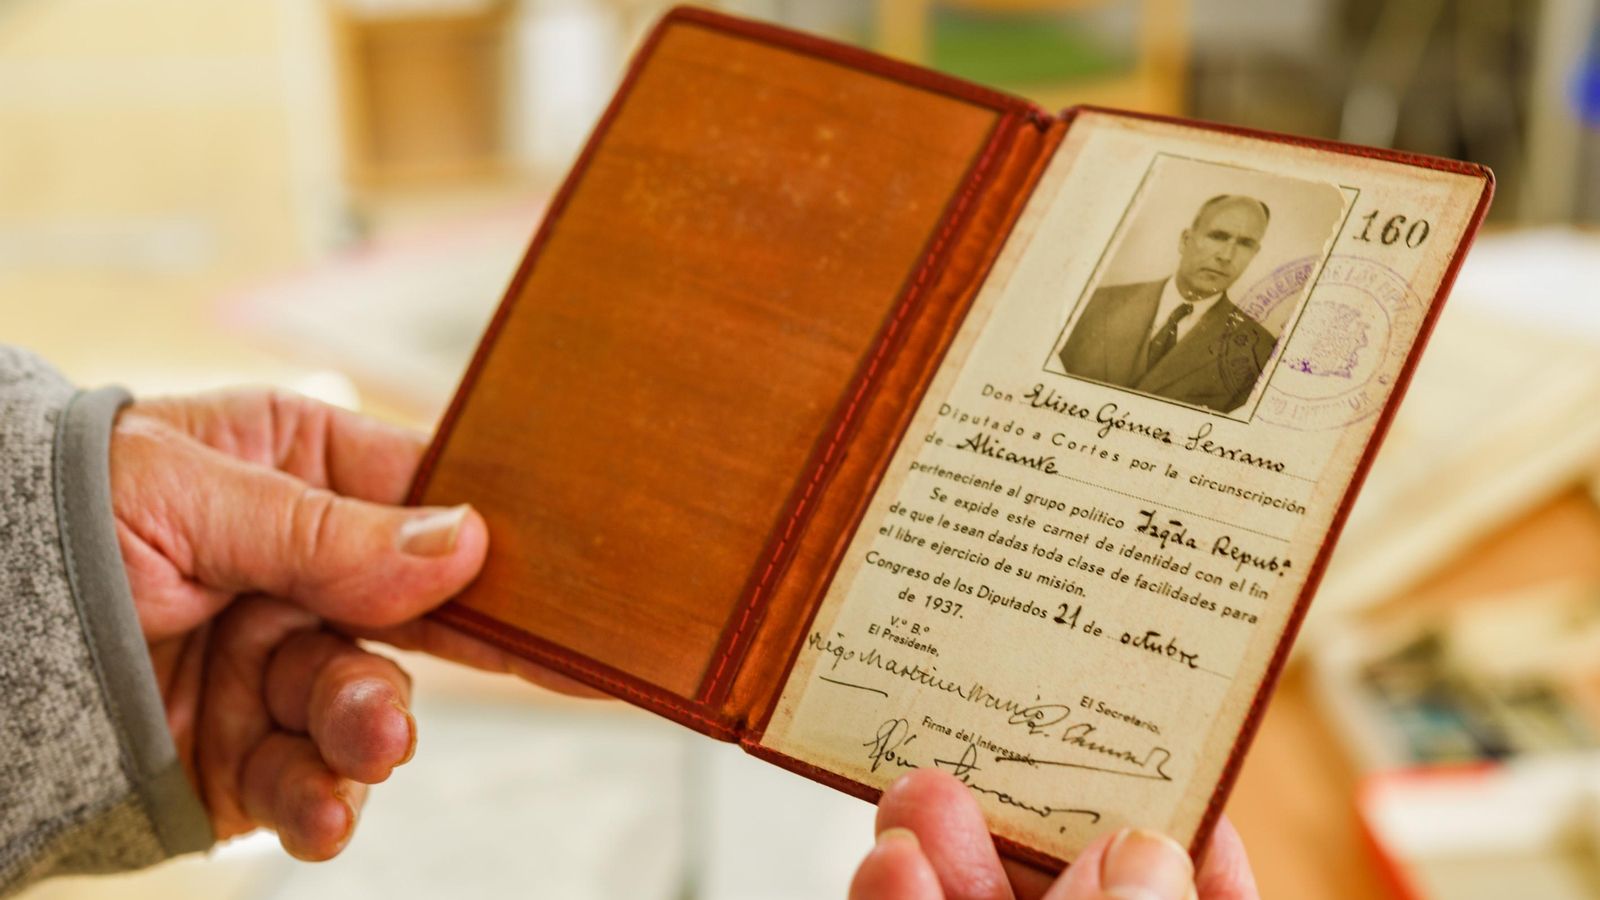 160
CONGRESO DE LOS DIPUTADOS
Don Eliseo Gómez Serrano
Diputado a Cortes por la circunscripción
de Alicante
perteneciente al grupo político Izqda Repub.ª
Se expide este carnet de identidad con el fin
de que le sean dadas toda clase de facilidades para
el libre ejercicio de su misión.
Congreso de los Diputados 21 de octubre
de 1937.
V.º B.º
El Presidente,
El Secretario,
Diego Martínez Barrio
Firma del Interesado.
Góm Serrano